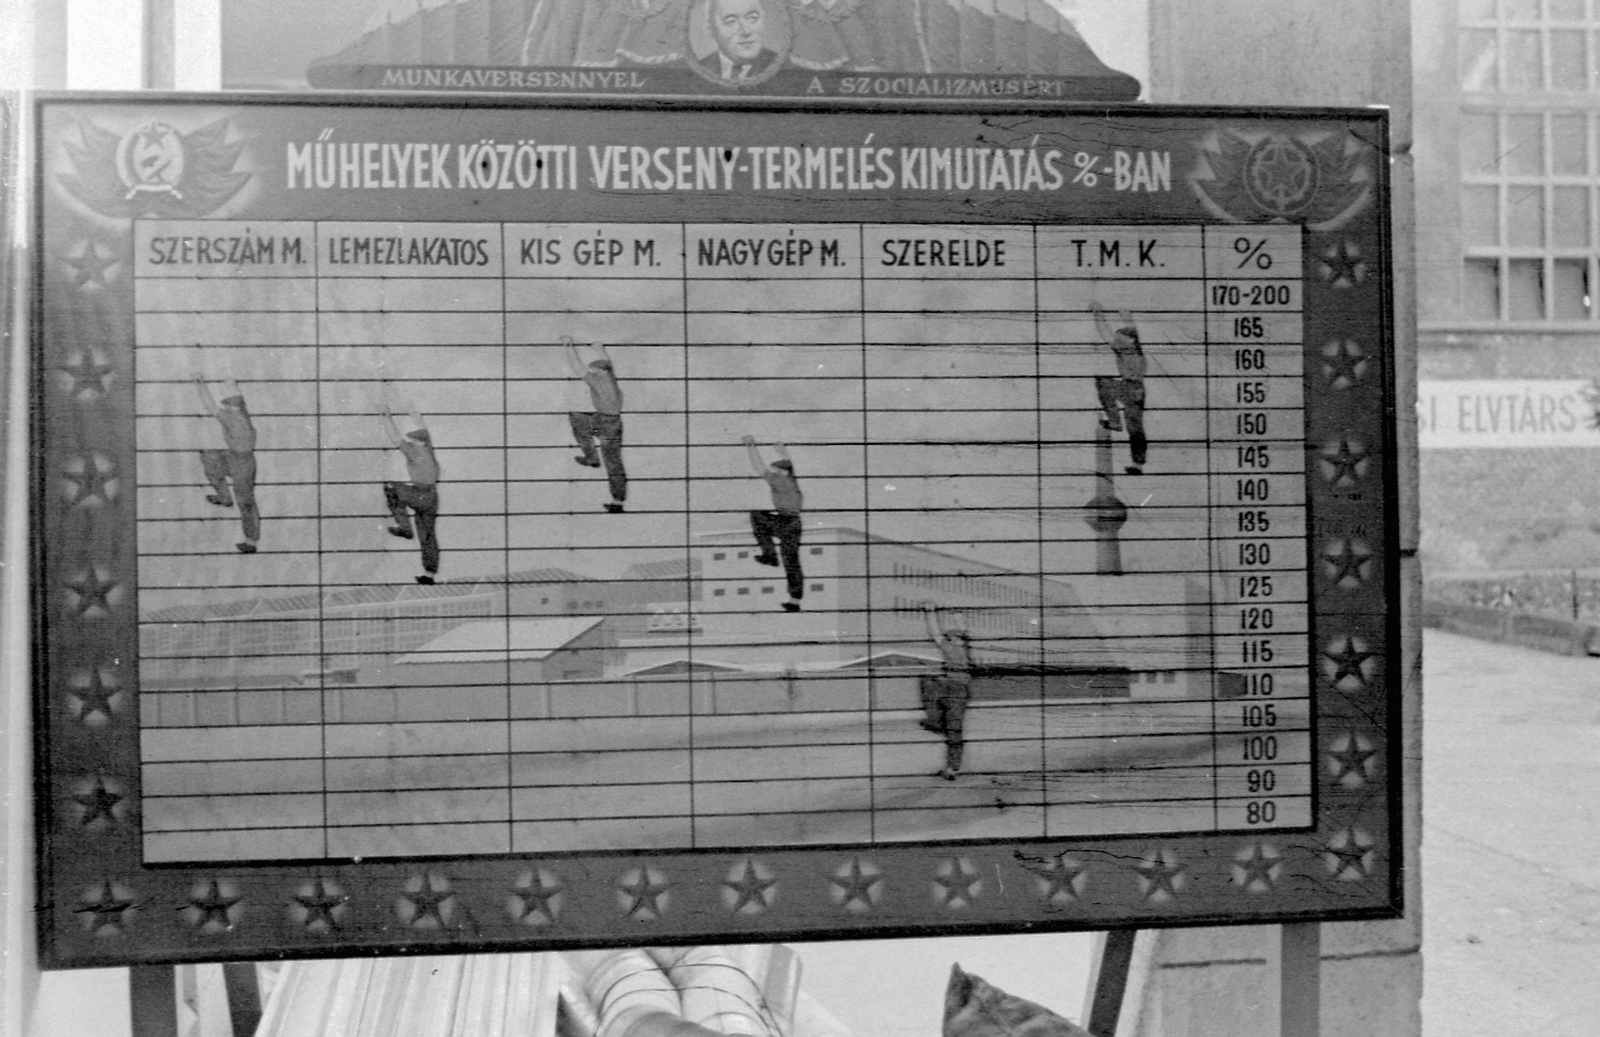 MUNKAVERSENNYEL A SZOCIALIZMUSÉRT
MŰHELYEK KÖZÖTTI VERSENY-TERMELÉS KIMUTATÁS %-BAN
SZERSZÁM M. LEMEZLAKATOS KIS GÉP M. NAGYGÉP M. SZERELDE T.M.K. %
170-200
165
160
155
150
145
140
135
130
125
120
115
110
105
100
90
80
SI ELVTÁRS